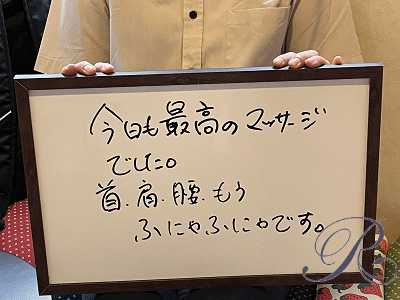 今日も最高のマッサージ
でした。
首、肩、腰、もう
ふにゃふにゃです。